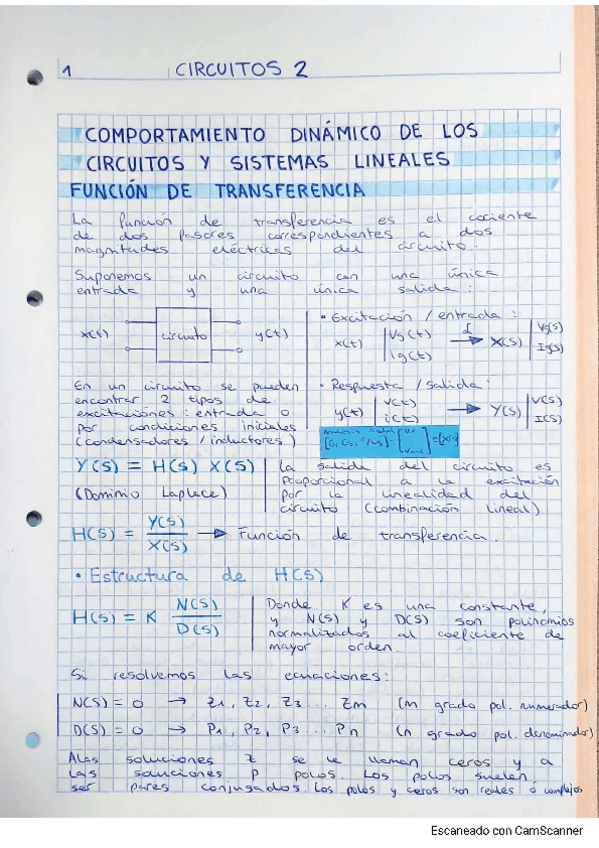 1 CIRCUITOS 2
COMPORTAMIENTO DINÁMICO DE LOS
CIRCUITOS Y SISTEMAS LINEALES
FUNCIÓN DE TRANSFERENCIA
La función de transferencia es el cociente
de dos fasores correspondientes a dos
magnitudes eléctricas del circuito.
Suponemos un circuito con una única
entrada y una única salida:
x(t) circuito y(t)
• Excitación / entrada:
x(t) | Vg(t) Ig(t) → X(s) | Vg(s) Ig(s)
En un circuito se pueden
encontrar 2 tipos de
excitaciones: entrada o
por condiciones iniciales
(condensadores / inductores)
• Respuesta / salida:
y(t) | v(t) i(t) → Y(s) | V(s) I(s)
Y(s) = H(s) X(s)
(Dominio Laplace)
La salida del circuito es
proporcional a la excitación
por la linealidad del
circuito (combinación lineal)
H(s) = Y(s) / X(s) → Función de transferencia.
• Estructura de H(s)
H(s) = K N(s) / D(s)
Donde K es una constante,
y N(s) y D(s) son polinomios
normalizados al coeficiente de
mayor orden.
Si resolvemos las ecuaciones:
N(s) = 0 → z1, z2, z3... zm (m grado pol. numerador)
D(s) = 0 → P1, P2, P3... Pn (n grado pol. denominador)
A las soluciones z se le llaman ceros y a
las soluciones p polos. Los polos suelen
ser pares conjugados. Los polos y ceros son reales ó complejos
Escaneado con CamScanner